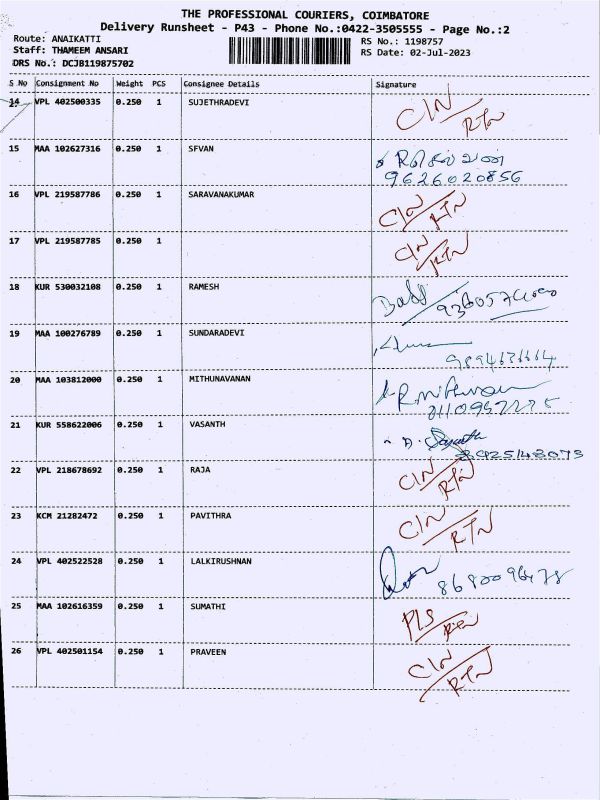 THE PROFESSIONAL COURIERS, COIMBATORE
Delivery Runsheet - P43 - Phone No.:0422-3505555 - Page No.:2
Route: ANAIKATTI RS No.: 1198757
Staff: THAMEEM ANSARI RS Date: 02-Jul-2023
DRS No.: DCJB119875702
S No Consignment No Weight PCS Consignee Details Signature
14 VPL 402500335 0.250 1 SUJETHRADEVI C/N/RTN
15 MAA 102627316 0.250 1 SFVAN
9626020856
16 VPL 219587786 0.250 1 SARAVANAKUMAR C/N/RTN
17 VPL 219587785 0.250 1 C/N/RTN
18 KUR 530032108 0.250 1 RAMESH
19 MAA 100276789 0.250 1 SUNDARADEVI
20 MAA 103812000 0.250 1 MITHUNAVANAN
21 KUR 558622006 0.250 1 VASANTH
22 VPL 218678692 0.250 1 RAJA C/N/RTN
23 KCM 21282472 0.250 1 PAVITHRA C/N/RTN
24 VPL 402522528 0.250 1 LALKIRUSHNAN
25 MAA 102616359 0.250 1 SUMATHI P/S/RTN
26 VPL 402501154 0.250 1 PRAVEEN C/N/RTN